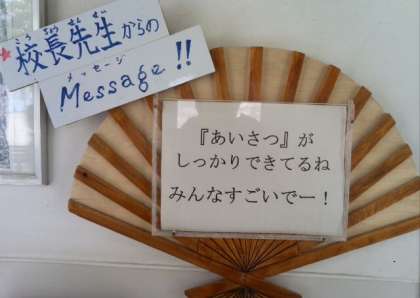 校長先生からの
こうちょうせんせい
Message!!
メッセージ
『あいさつ』が
しっかりできてるね
みんなすごいでー！